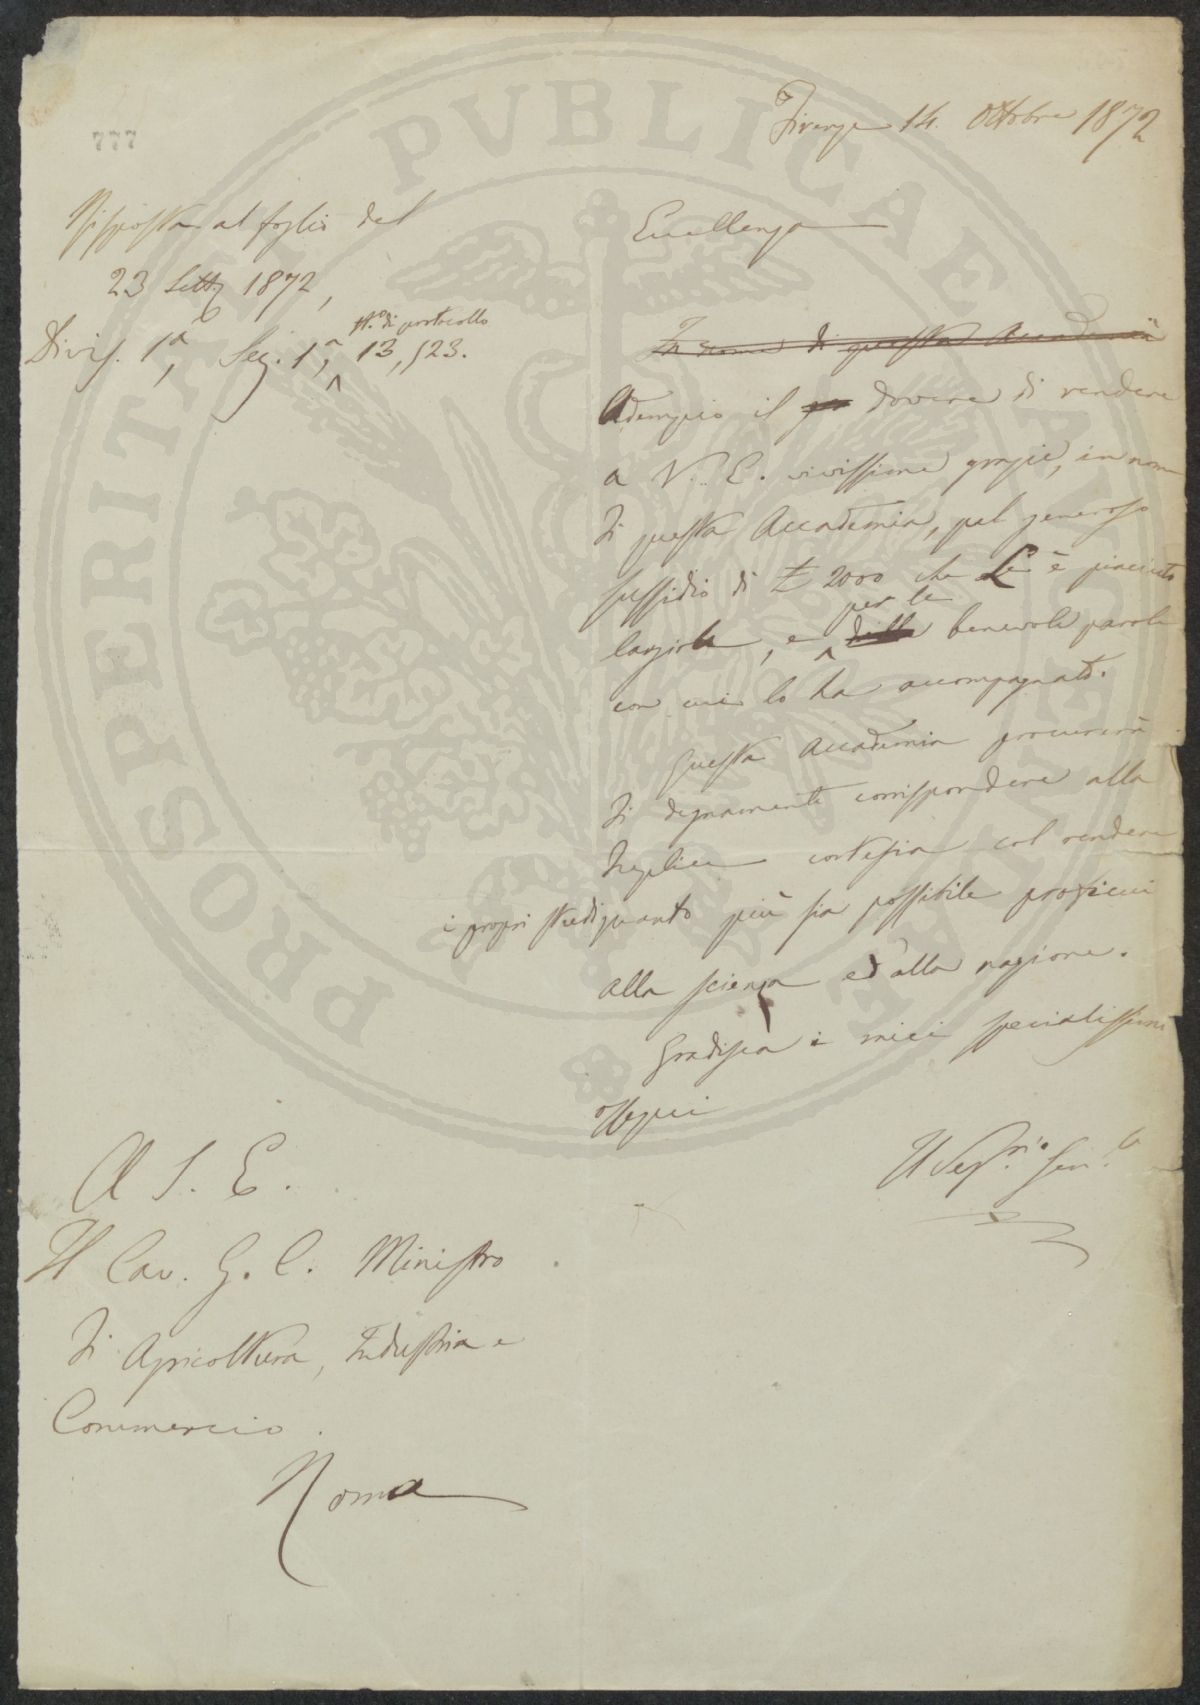 777
Firenze 14. Ottobre 1872
Risposta al foglio del
23 Sett.e 1872,
Divis. 1ª, Sez. 1ª, N.º di protocollo 13,523.
Eccellenza
In nome di questa Accademia
Adempio il dovere di rendere
a V. E. vivissime grazie, in nome
di questa Accademia, pel generoso
sussidio di £ 2000 che Le è piaciuto
largirle, e per le benevole parole
con cui lo ha accompagnato.
Questa Accademia procurerà
di degnamente corrispondere alla
duplice cortesia col rendere
i propri studi quanto più sia possibile proficui
alla scienza ed alla nazione.
Gradisca i miei specialissimi
ossequi
Il Seg.rio Gen.le
A S. E.
Il Cav. G. C. Ministro
di Agricoltura, Industria e
Commercio.
Roma
PROSPERITATI PVBLICAE AVGENDAE